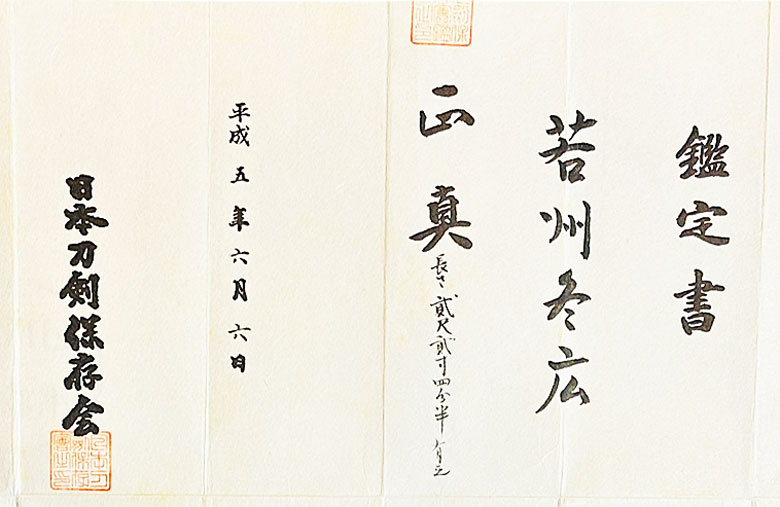 鑑定書
若州冬広
正真
長さ 貳尺貳寸四分半 有之
平成五年六月六日
日本刀剣保存会